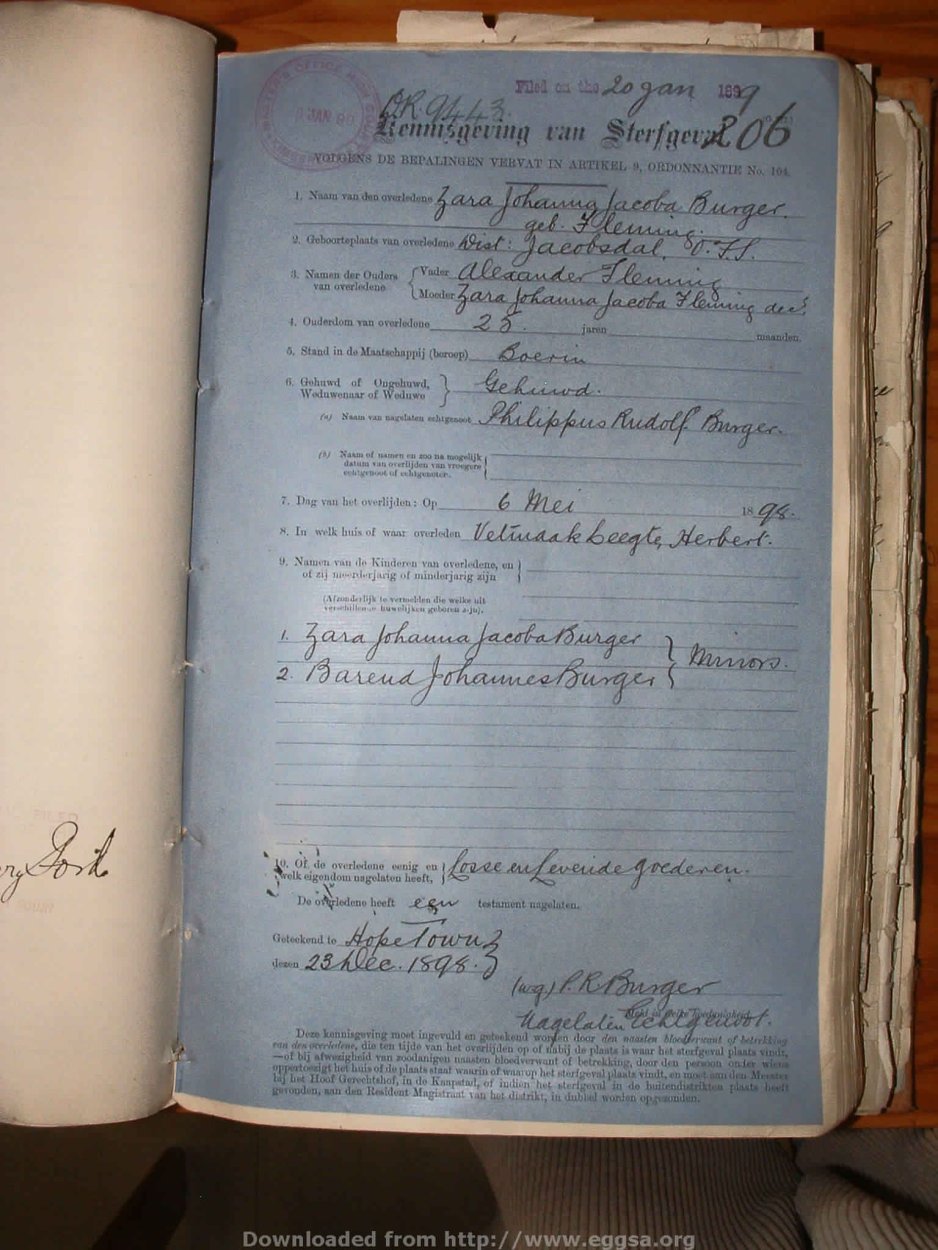 Filed on the 20 Jan 1899
DR. 9443.
Kennisgeving van Sterfgeval 206
VOLGENS DE BEPALINGEN VERVAT IN ARTIKEL 9, ORDONNANTIE No. 104.
1. Naam van den overledene Zara Johanna Jacoba Burger.
geb. Fleming.
2. Geboorteplaats van overledene Dist: Jacobsdal, O.F.S.
3. Namen der Ouders van overledene { Vader Alexander Fleming
Moeder Zara Johanna Jacoba Fleming decd.
4. Ouderdom van overledene 25. jaren maanden.
5. Stand in de Maatschappij (beroep) Boerin
6. Gehuwd of Ongehuwd, } Gehuwd.
Weduwenaar of Weduwe
(a) Naam van nagelaten echtgenoot Philippus Rudolf Burger.
(b) Naam of namen en zoo na mogelijk
datum van overlijden van vroegere
echtgenoot of echtgenooten.
7. Dag van het overlijden: Op 6 Mei 1898.
8. In welk huis of waar overleden Herbert.
9. Namen van de Kinderen van overledene, en
of zij meerderjarig of minderjarig zijn
(Afzonderlijk te vermelden die welke uit
verschillende huwelijken geboren zijn).
1. Zara Johanna Jacoba Burger
} Minors.
2. Barend Johannes Burger
10. Of de overledene eenig en } Losse en Levende goederen.
welk eigendom nagelaten heeft,
De overledene heeft een testament nagelaten.
Geteekend te Hope Town
dezen 23 Dec. 1898.
(wg) P. R. Burger
Nagelaten Echtgenoot.
Deze kennisgeving moet ingevuld en geteekend worden door den naasten bloedverwant of betrekking
van den overledene, die ten tijde van het overlijden op of nabij de plaats is waar het sterfgeval plaats vindt,
—of bij afwezigheid van zoodanigen naasten bloedverwant of betrekking, door den persoon onder wiens
oppertoezigt het huis of de plaats staat waarin of waarop het sterfgeval plaats vindt, en moet aan den Meester
bij het Hoof Gerechtshof, in de Kaapstad, of indien het sterfgeval in de buitendistrikten plaats heeft
gevonden, aan den Resident Magistraat van het distrikt, in dubbel worden opgezonden.
Downloaded from http://www.eggsa.org